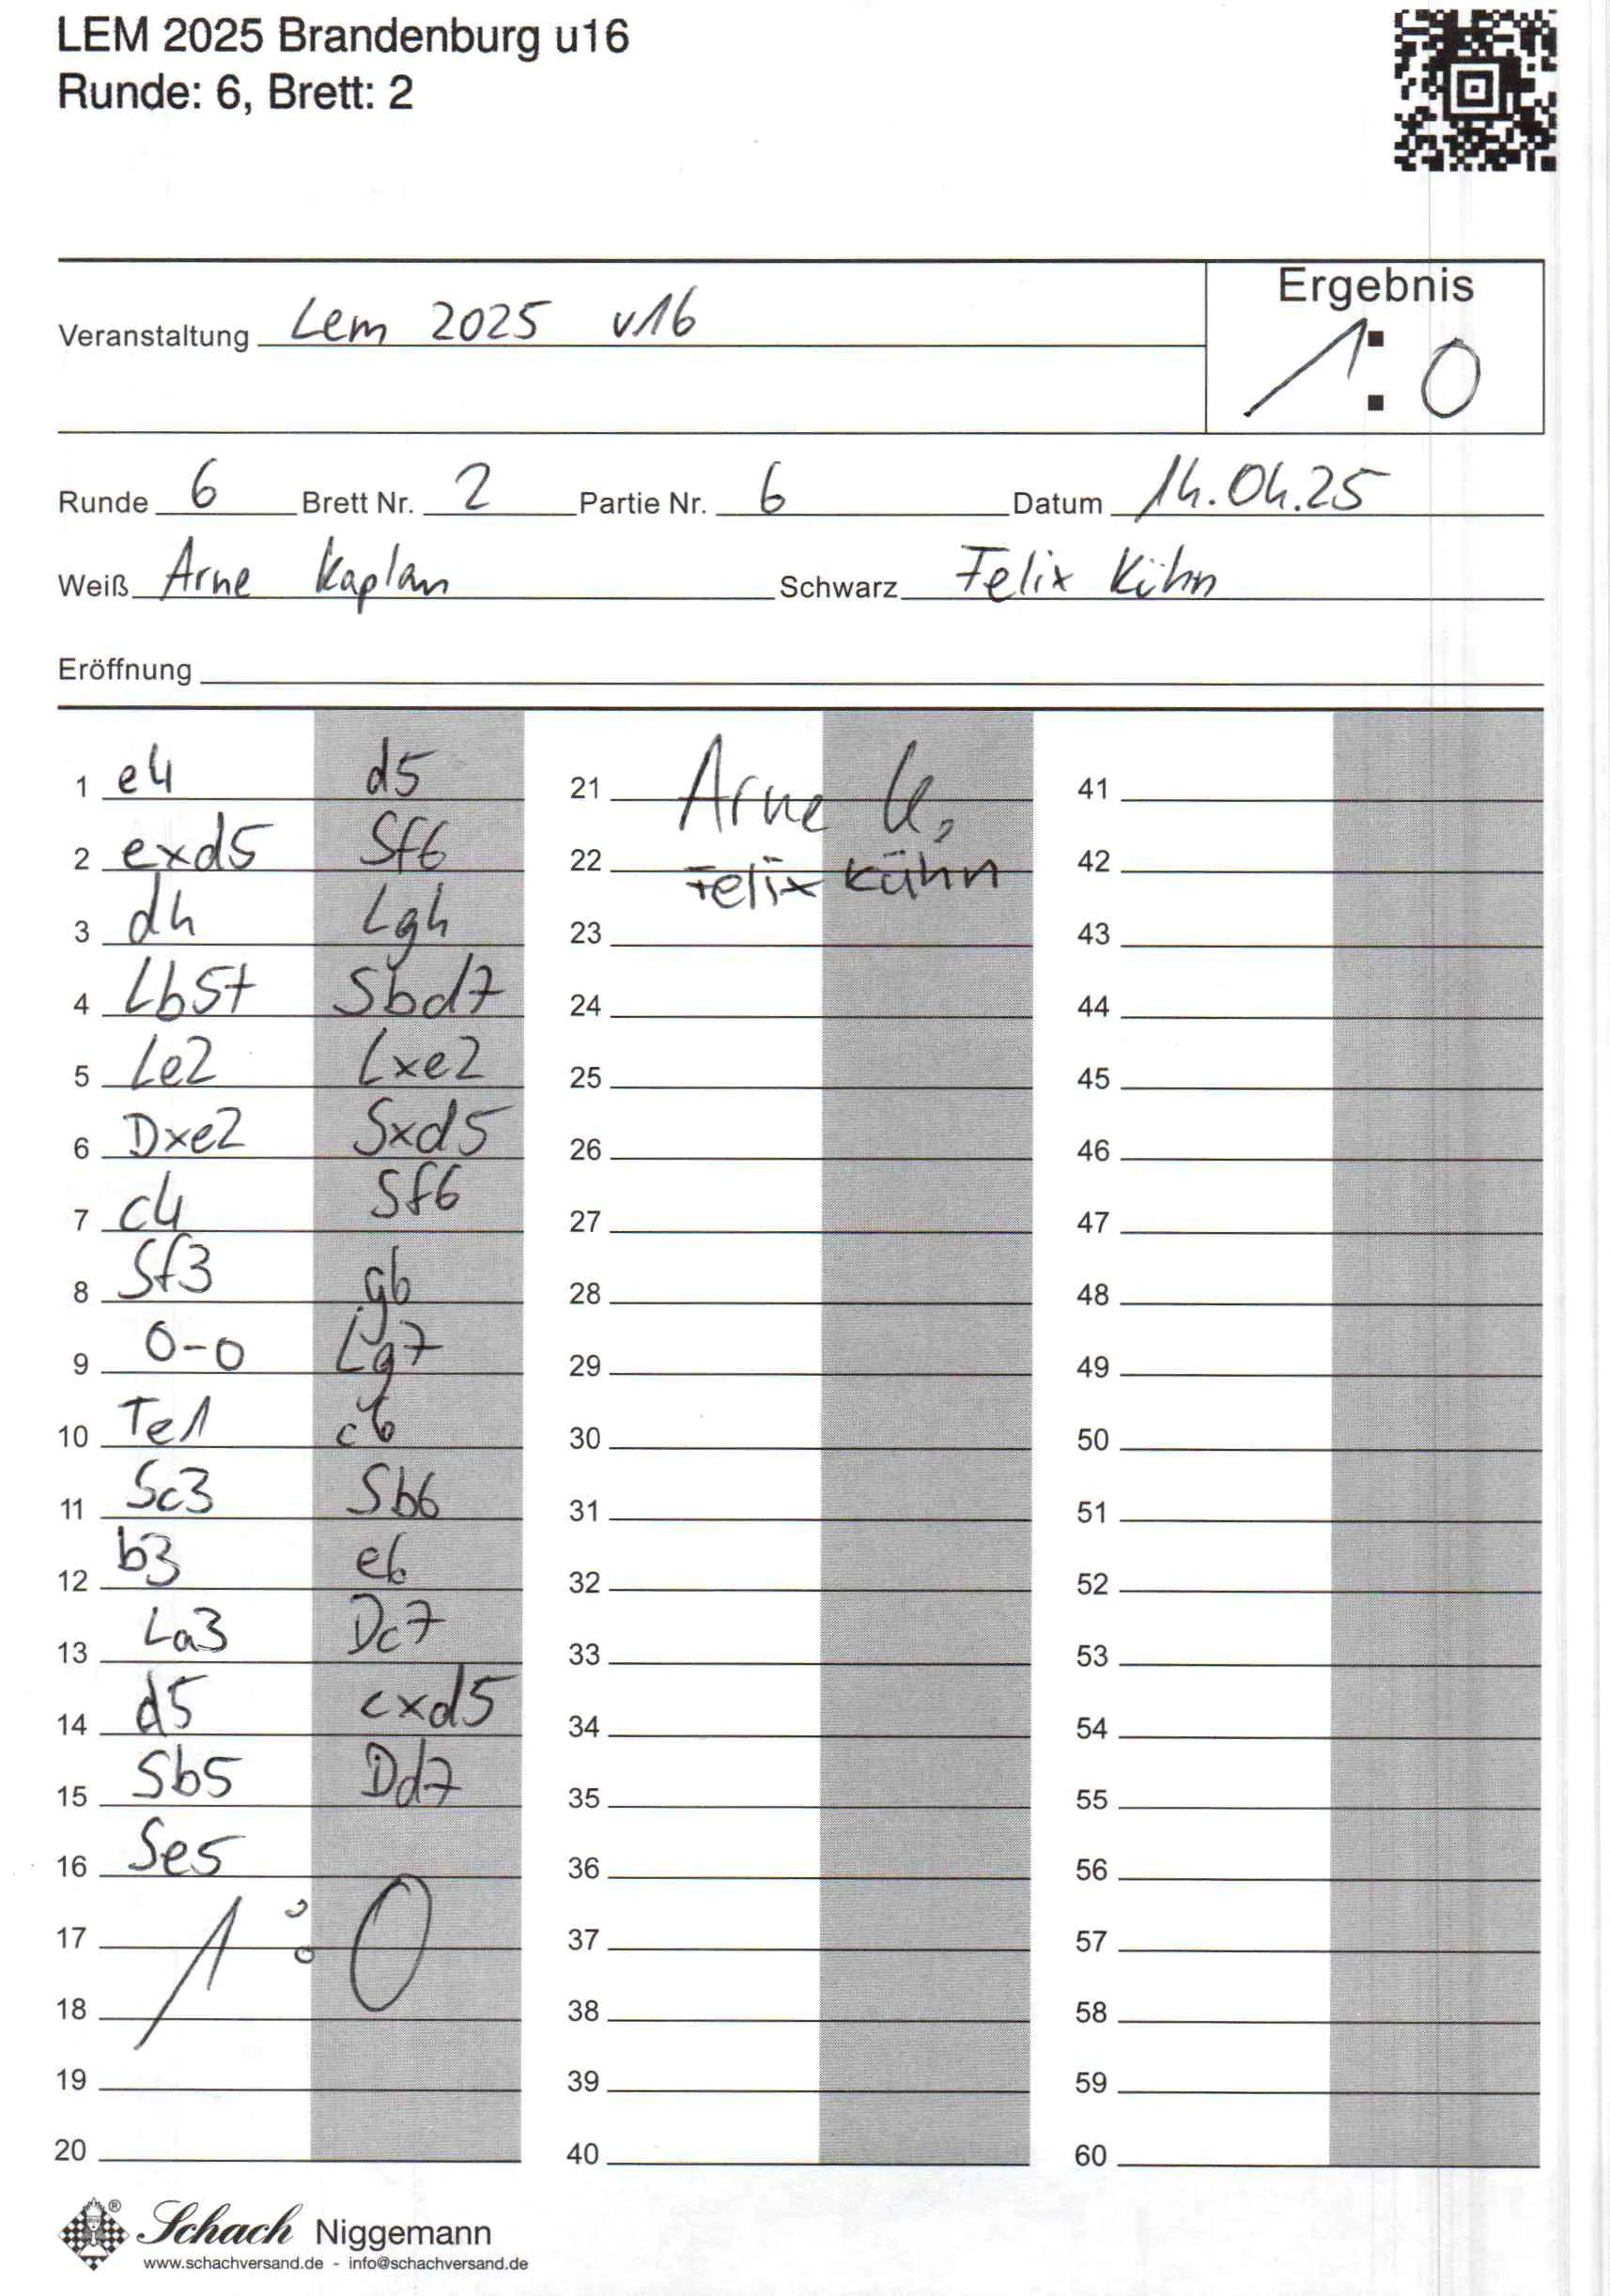 LEM 2025 Brandenburg u16
Runde: 6, Brett: 2
Ergebnis
Veranstaltung Lem 2025 u16
1:0
Runde 6 Brett Nr. 2 Partie Nr. 6 Datum 14.04.25
Weiß Arne Kaplan Schwarz Felix Kühn
Eröffnung
1 e4 d5
2 exd5 Sf6
3 d4 Lg4
4 Lb5+ Sbd7
5 Le2 Lxe2
6 Dxe2 Sxd5
7 c4 Sf6
8 Sf3 g6
9 0-0 Lg7
10 Te1 c6
11 Sc3 Sb6
12 b3 e6
13 La3 Dc7
14 d5 cxd5
15 Sb5 Dd7
16 Se5
17 1:0
18
19
20
21 Arne K.
22 Felix Kühn
23
24
25
26
27
28
29
30
31
32
33
34
35
36
37
38
39
40
41
42
43
44
45
46
47
48
49
50
51
52
53
54
55
56
57
58
59
60
® Schach Niggemann
www.schachversand.de - info@schachversand.de